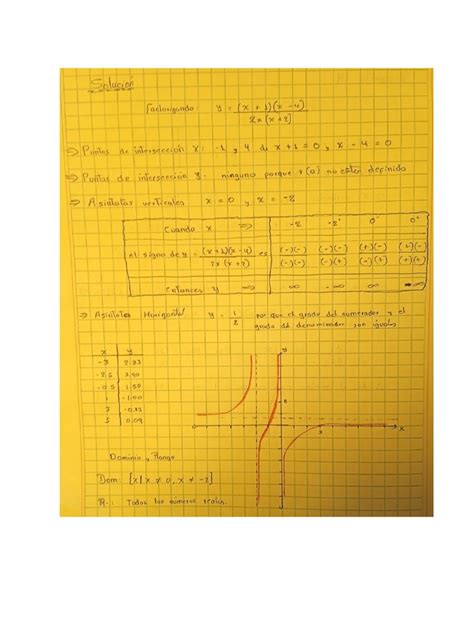 Solución
Factorizando: y = (x + 1)(x - 4)
2x (x + 2)
⇒ Puntos de intersección X: -1, y 4 de x + 1 = 0, x - 4 = 0
⇒ Puntos de intersección y: ninguno porque r(0) no
definido
⇒ Asíntotas verticales x = 0, y x = -2
Cuando x ⇒ -2⁻ -2⁺ 0⁻ 0⁺
el signo de y = (x + 1)(x - 4) es (-)(-) (-)(-) (+)(-) (+)(-)
2x (x + 2) (-)(-) (-)(+) (-)(+) (+)(+)
Entonces y ⇒ ∞ -∞ ∞ -∞
⇒ Asíntotas Horizontal y = 1 por que el grado del numerador y el
2 grado del denominador son iguales
x y
-3 2.33
-2.5
-0.5 1.50
1 -1.00
3
5 0.09
y
x
Dominio y Rango
Dom: {x | x ≠ 0, x ≠ -2}
R: Todos los números reales.